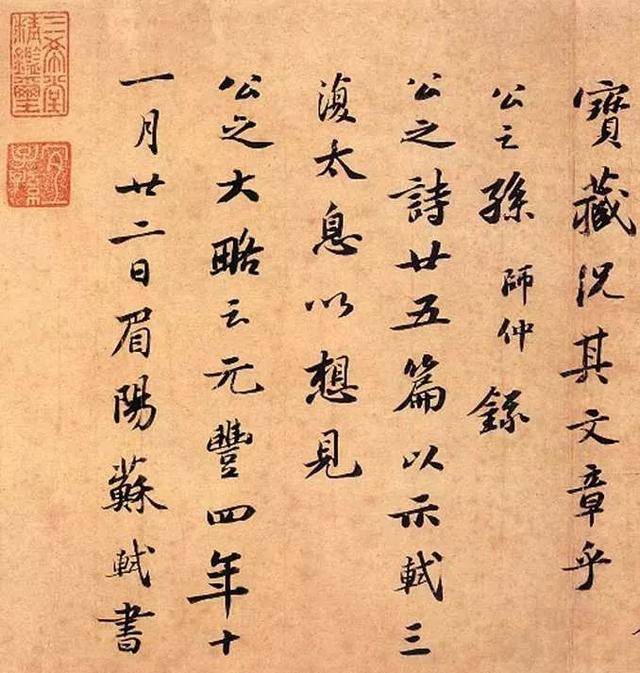 寶藏況其文章乎
公之孫師仲錄
公之詩廿五篇以示軾三
復太息以想見
公之大略云元豐四年十
一月廿二日眉陽蘇軾書
三希堂精鑒璽
宜子孫